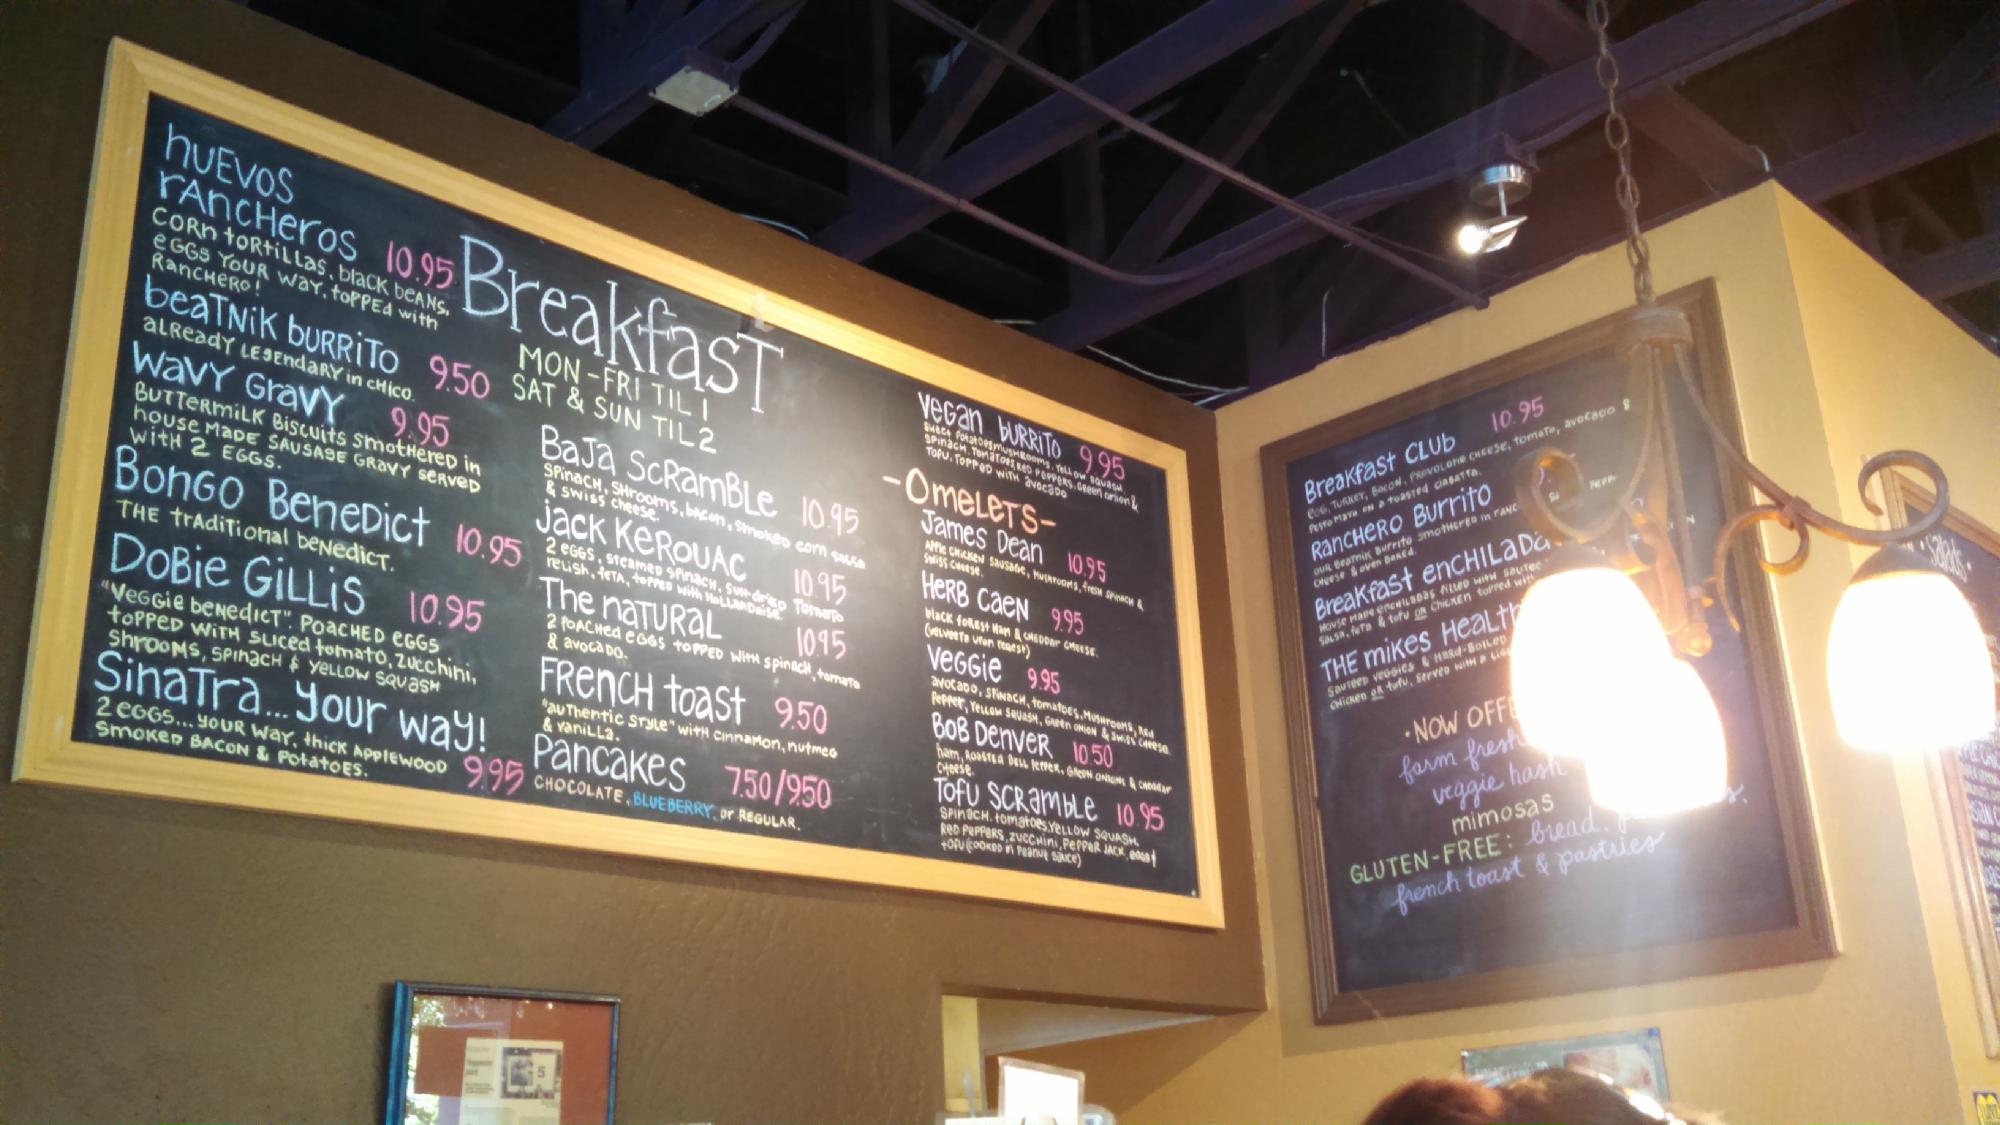 hUEVOS
rAncHeros 10.95
CORn toRtiLLas, black beAns,
eGGS YOUR WAY, toPPed with
RancHero!
beaTNiK bURRiTo 9.50
aLReadY LeGendaRY in cHico.
WaVY GraVY 9.95
BUTTeRmiLK BiscUits smotHered in
hoUse MADE SAUSAGE GRAVY SERVED
WitH 2 EGGS.
BonGO BeneDict 10.95
THE tRaditional beNedicT.
DoBie GiLLiS 10.95
"VeGGie beNedicT". POACHED eGGS
toPPED WITH SLiced tomatO, ZUccHini,
SHrOOMS, SPINACH & YeLLOW SQUASH
SinaTra... YoUr waY!
2 eGGS... YOUR WAY, tHick APPLEWOOD
SmokeD BACON & PotatoES. 9.95
BreakfasT
MON - FRI TiL 1
SAT & SUN TiL 2
BaJa ScRamBLe 10.95
SPinacH, SHrooms, bacon, smoked corn saLsa
& swiss cHeese.
jack KeROUAC 10.95
2 EGGS, steamed SPinacH, SUN-dried TomaTo
reLisH, feTA, toPPed witH HoLLanDaise.
The naTURAL 10.95
2 POACHed eGGS toPPED WitH spinacH, tomato
& avocaDo.
FRencH toasT 9.50
"aUtHentic StYLe" witH cinnamon, nUtmeG
& vaniLLa.
PancaKes 7.50/9.50
CHOCOLATE, BLUEBERRY, or REGULAR.
VeGan bURRiTo 9.95
Sweet Potatoes, mUSHROOMS, YeLLow sQUasH
SPinacH, Tomatoes, ReD PePPers, Green onion &
ToFU, ToPPeD WitH avocaDo
- OmeLeTS -
James Dean 10.95
APPLe cHicken saUsaGe, mUsHrooms, fresH sPinacH &
Swiss cHeese.
HerB caen 9.95
bLack foRest Ham & cHeddar cHeese.
(VeLveeta Upon reQUest)
VeGGie 9.95
avocaDo, sPinacH, tomatoes, MUSHROOMS, ReD
PePPer, YeLLow SQUasH, Green onion & Swiss cHeese.
BoB Denver 10.50
Ham, RoasteD BeLL PePPer, Green onions & cHeddar
cHeese.
ToFU scRambLe 10.95
SPinacH, tomatoes, YeLLow SQUasH,
ReD PePPers, ZUccHini, PePPer Jack, eGGs &
toFU (cookeD in Peanut saUce)
Breakfast CLUb 10.95
eGG, TURKeY, Bacon, PROVoLone cHeese, tomato, avocaDo &
Pesto mayo on a toasteD ciabatta.
RancHero BURRito
oUR Beatnik BURRito smotHereD in
cHeese & oven BakeD.
BreaKfast encHiLaDa
HoUse maDe encHiLaDas fiLLeD witH
saLsa, feta & tofU OR cHicken toPPeD
THE miKes HeaLtH
SaUteeD veGGies & HarD-BoiLeD
cHicken OR tofU, serveD witH a
• NOW
farm fresh
veggie hash
mimosas
GLUTEN-FREE: bread,
french toast & pastries
Salads